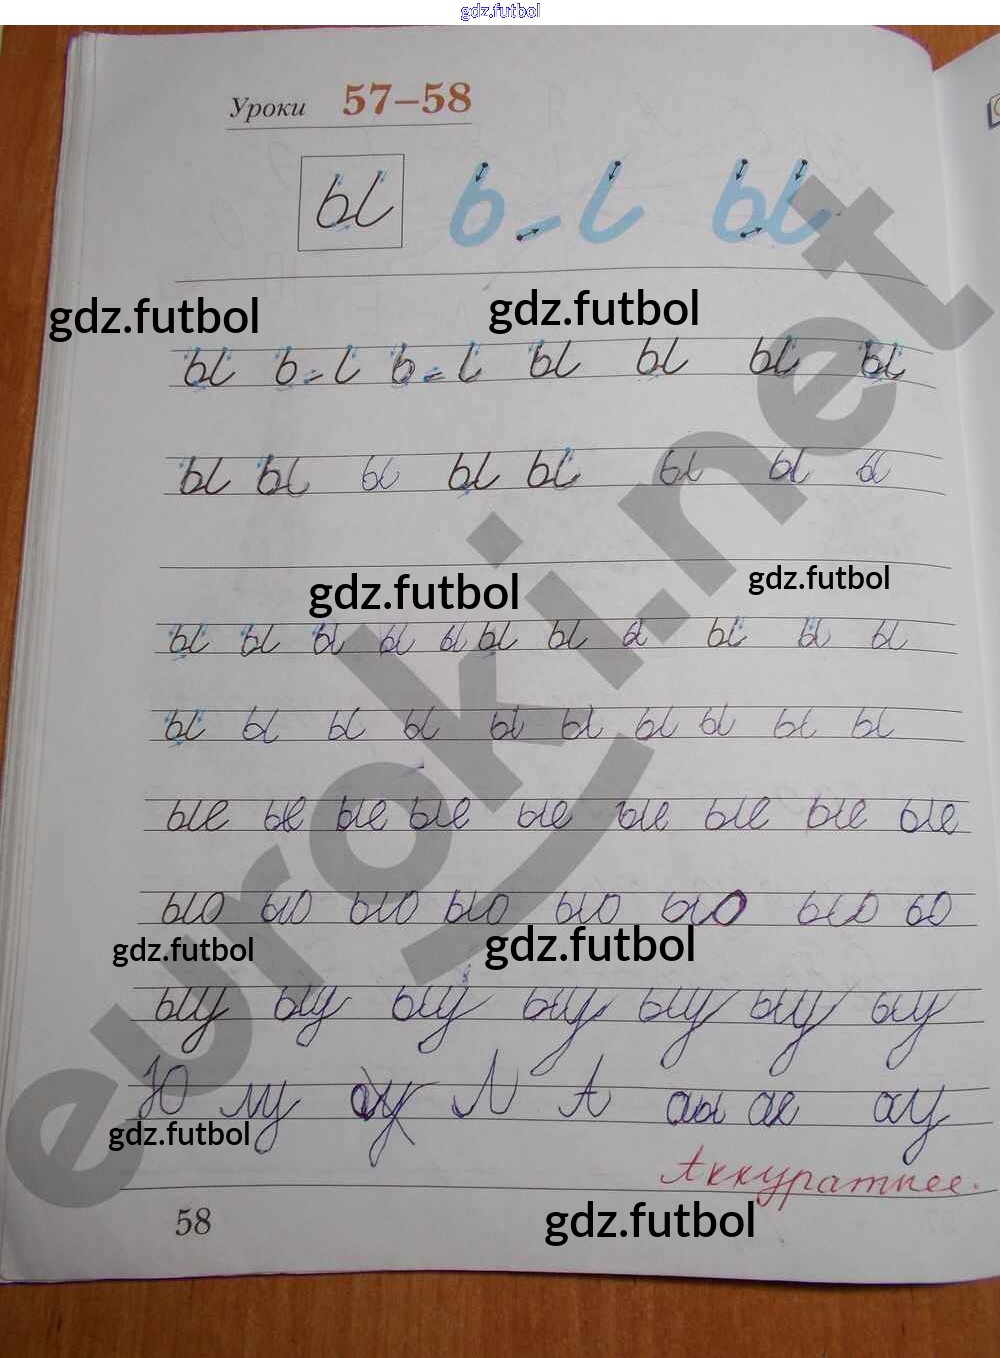 gdz.futbol
Уроки 57–58
ы ь - ı ы
gdz.futbol gdz.futbol
ы ь - ı ь - ı ы ы ы ы
ы ы ы ы ы ы ы ы
gdz.futbol gdz.futbol
ы ы ы ы ы ы ы ы ы ы ы
ы ы ы ы ы ы ы ы ы ы
ые ые ые ые ые ые ые ые ые
ыо ыо ыо ыо ыо ыо ыо ьо
gdz.futbol gdz.futbol
ыу ыу ыу ыу ыу ыу ыу
Ю лу ау Л А аы ае ау
gdz.futbol
Аккуратнее.
58
gdz.futbol
euroki.net